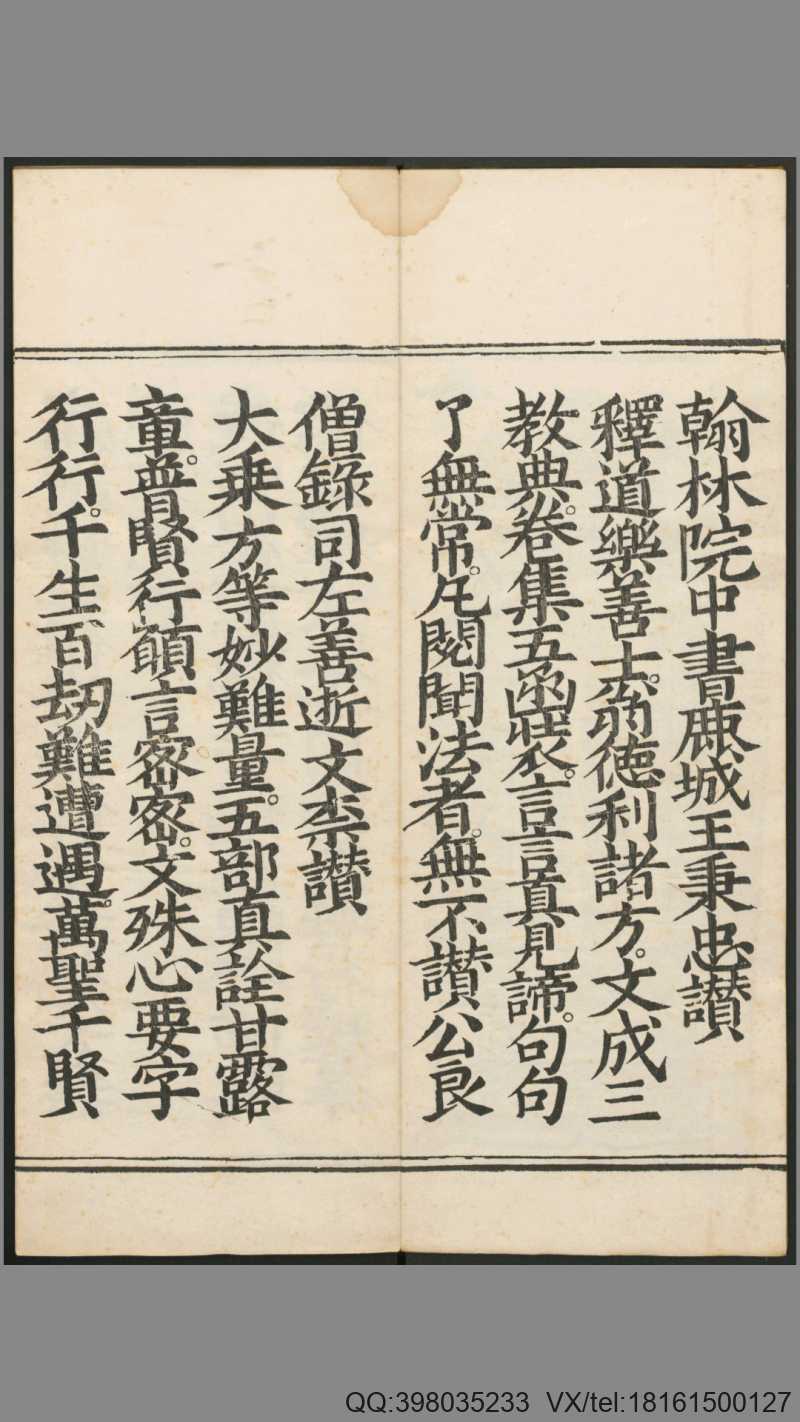 翰林院中書鹿城王秉忠讃
釋道樂善士。翁徳利諸方。文成三
教典。卷集五函裝。言言真見諦。句句
了無常。凡閱聞法者。無不讃公良
僧錄司左善逝文柰讃
大乗方等妙難量。五部真詮甘露
章。普賢行願言密密。文殊心要字
行行。千生百劫難遭遇。萬聖千賢
QQ:398035233 VX/tel:18161500127